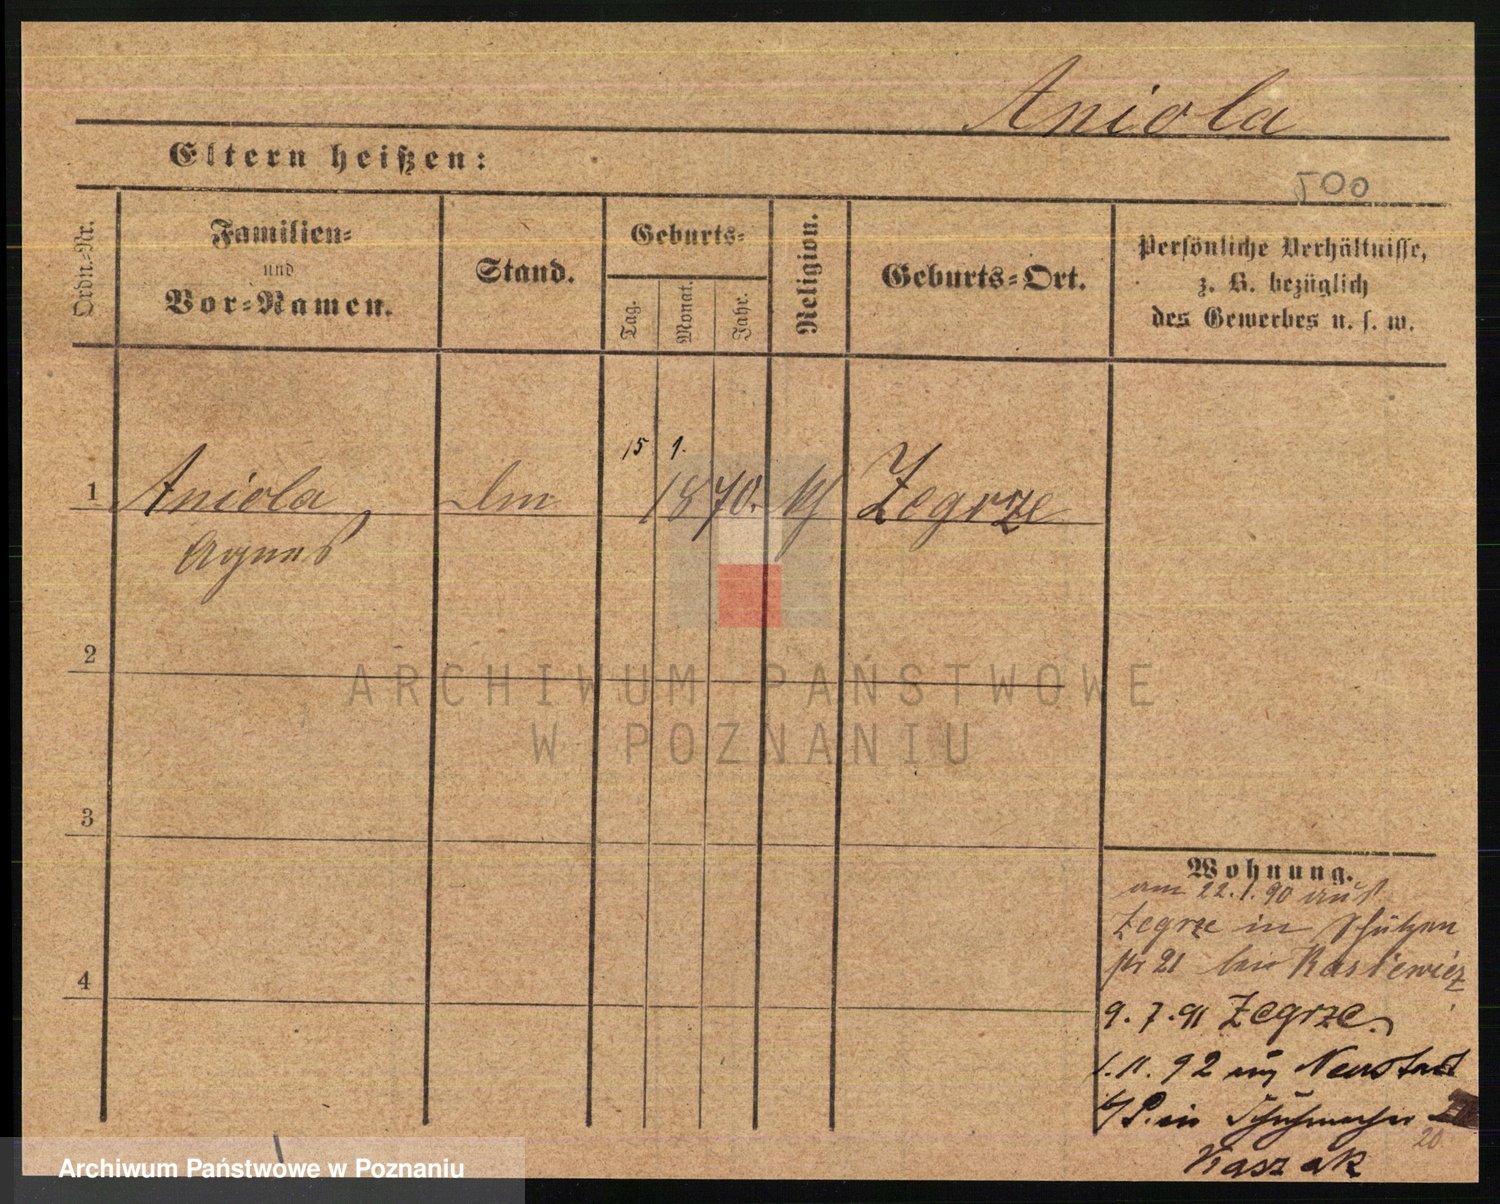 Aniola
Eltern heißen:
500
Ordn.-Nr.
Familien-
und
Vor-Namen.
Stand.
Geburts-
Tag.
Monat.
Jahr.
Religion.
Geburts-Ort.
Persönliche Verhältnisse,
z. B. bezüglich
des Gewerbes u. s. w.
15 1.
1 Aniola 1870. Zegrze
Agnes
2
3
4
Wohnung.
am 22.1.90 aus
Zegrze in Schützen
str 21 bei Rasiewicz
9.7.91 Zegrze
1.11.92 Neustadt
Schuhmacher
20
Kaszak
ARCHIWUM PAŃSTWOWE
W POZNANIU
Archiwum Państwowe w Poznaniu